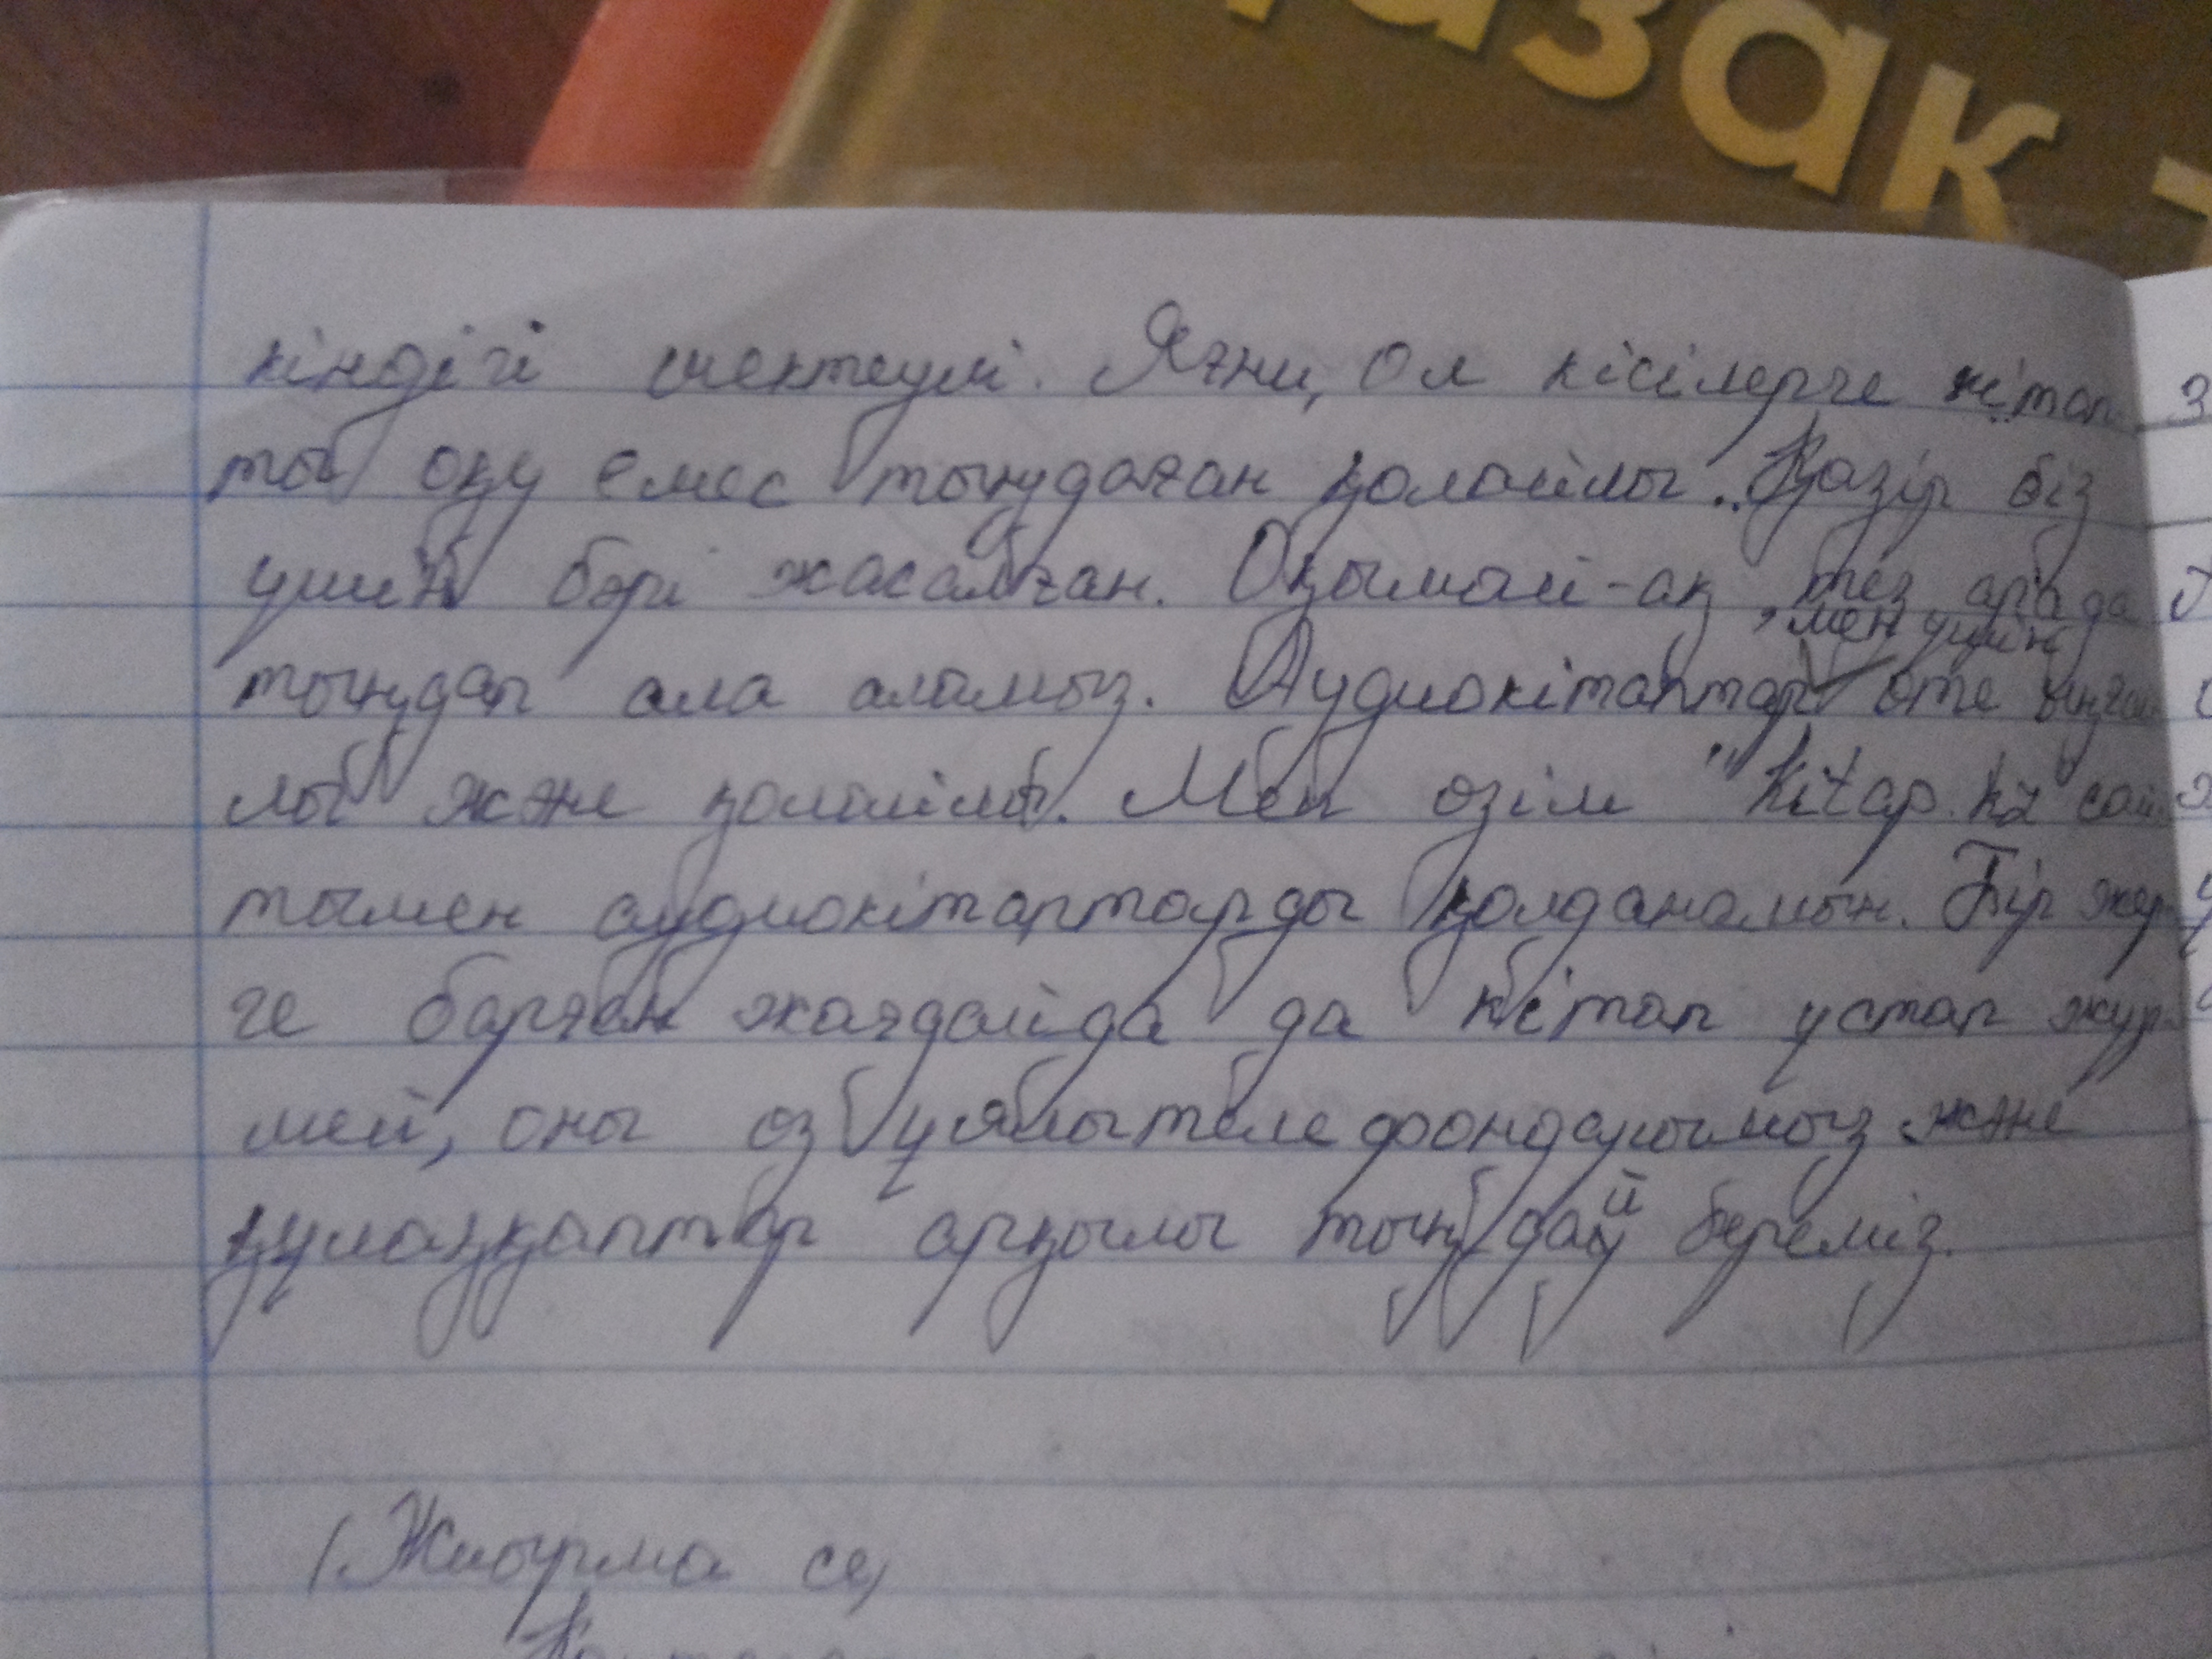 азақ
кіндігі шектеулі. Яғни, Ол кісілерге кітап
ты оқу емес тыңдаған қолайлы. Қазір біз
үшін бәрі жасалған. Оқымай-ақ тез арада
, мен үшін
тыңдап ала аламыз. Аудиокітаптар өте ыңғай
лы және қолайлы. Мен өзім "Kitap.kz сай
тымен аудиокітаптарды қолданамын. Бір жер
ге барған жағдайда да кітап ұстап жүр
мей, оны өз ұялы телефондарымыз және
құлаққаптар арқылы тыңдай береміз.
Жиырма се